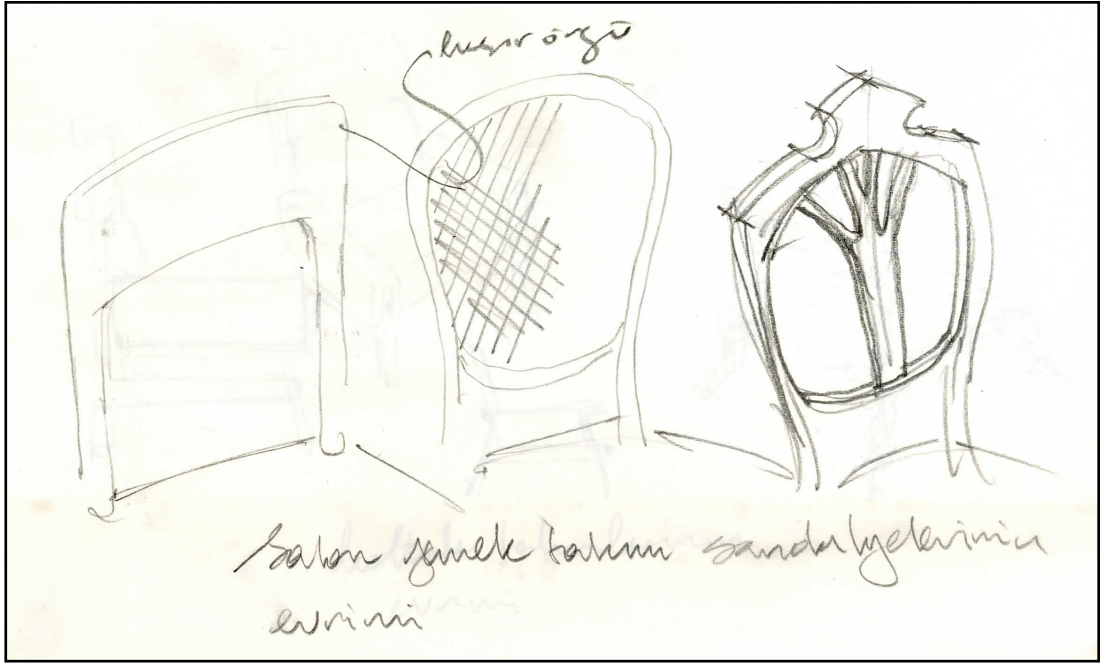 hasır örgü
Salon yemek takımı sandalyelerinin
evrimi